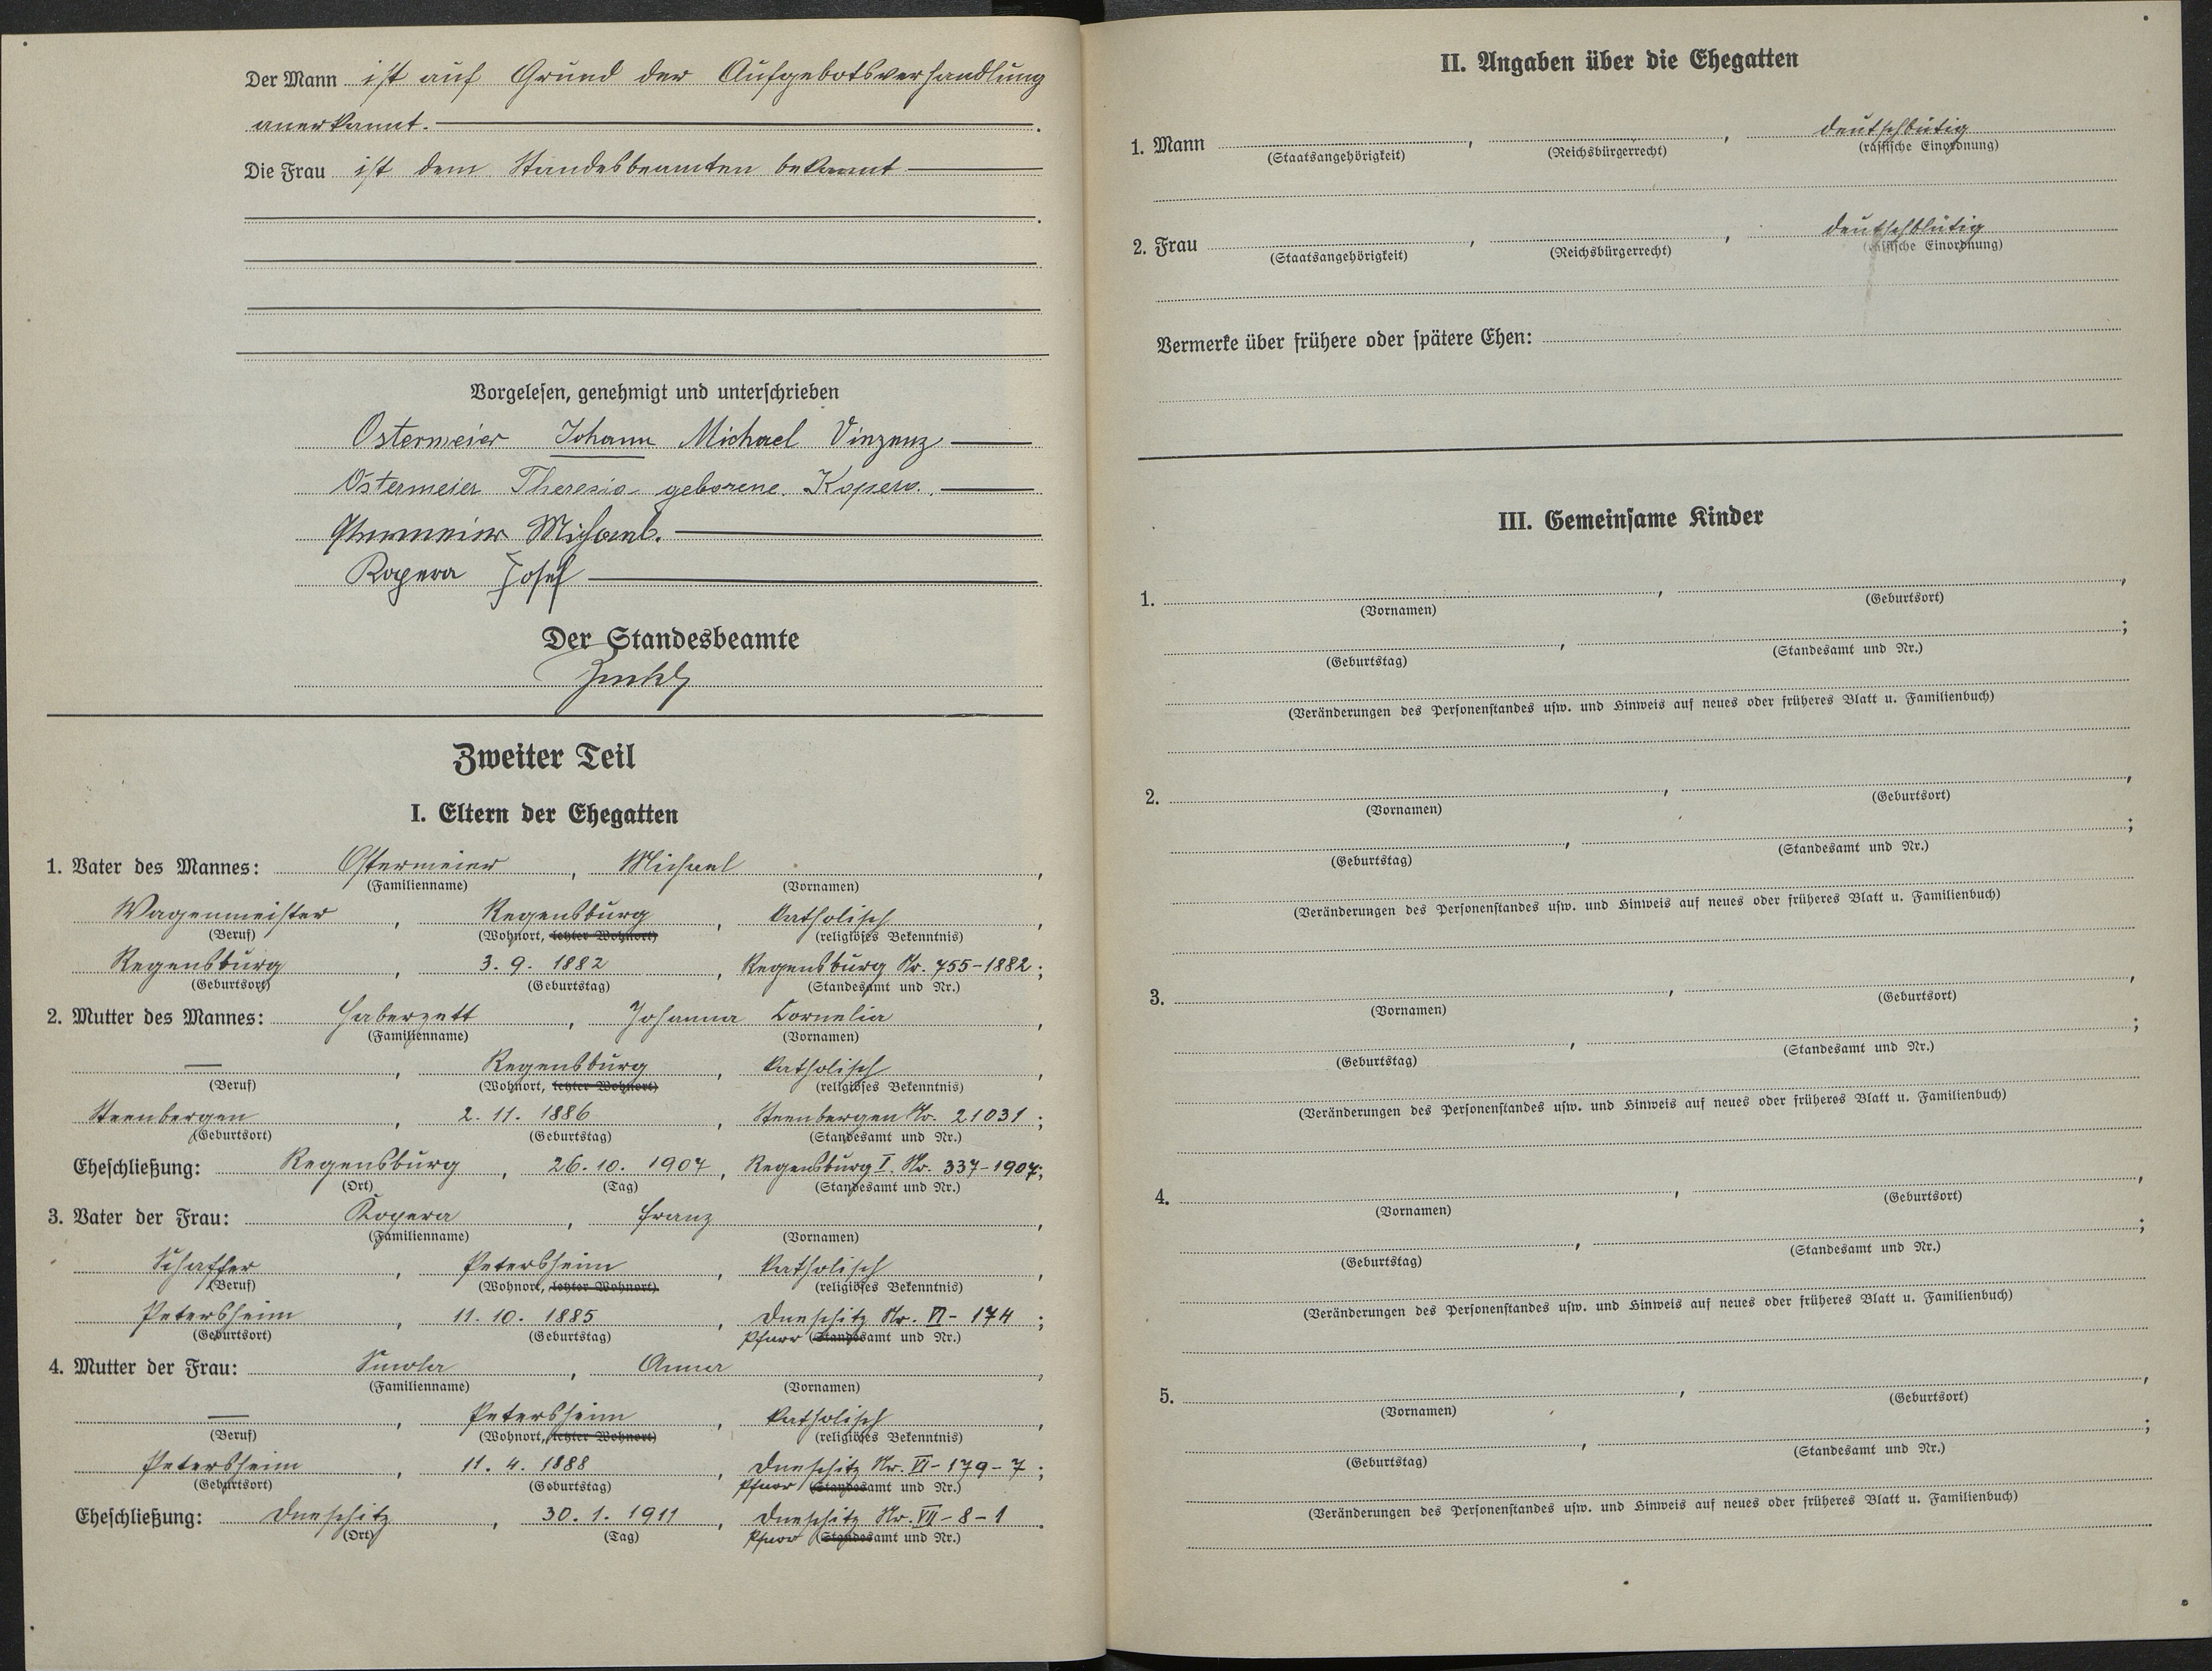 Der Mann ist auf Grund der Aufgebotsverhandlung
anerkannt.
Die Frau ist dem Standesbeamten bekannt
Vorgelesen, genehmigt und unterschrieben
Ostermeier Johann Michael Vinzenz
Ostermeier Theresia geborene Kopera.
Ostermeier Michael.
Kopera Josef
Der Standesbeamte
Zweiter Teil
I. Eltern der Ehegatten
1. Vater des Mannes: Ostermeier, Michael,
(Familienname) (Vornamen)
Wagenmeister, Regensburg, katholisch,
(Beruf) (Wohnort, letzter Wohnort) (religiöses Bekenntnis)
Regensburg, 3. 9. 1882, Regensburg Nr. 755-1882;
(Geburtsort) (Geburtstag) (Standesamt und Nr.)
2. Mutter des Mannes: Haberzett, Johanna Cornelia,
(Familienname) (Vornamen)
—, Regensburg, katholisch,
(Beruf) (Wohnort, letzter Wohnort) (religiöses Bekenntnis)
Steenbergen, 2. 11. 1886, Steenbergen Nr. 21031;
(Geburtsort) (Geburtstag) (Standesamt und Nr.)
Eheschließung: Regensburg, 26. 10. 1907, Regensburg I. Nr. 337-1907;
(Ort) (Tag) (Standesamt und Nr.)
3. Vater der Frau: Kopera, Franz,
(Familienname) (Vornamen)
Schaffer, Petersheim, katholisch,
(Beruf) (Wohnort, letzter Wohnort) (religiöses Bekenntnis)
Petersheim, 11. 10. 1885, Dneschitz Nr. VI - 174;
(Geburtsort) (Geburtstag) Pfarr (Standesamt und Nr.)
4. Mutter der Frau: Smola, Anna,
(Familienname) (Vornamen)
—, Petersheim, katholisch,
(Beruf) (Wohnort, letzter Wohnort) (religiöses Bekenntnis)
Petersheim, 11. 4. 1888, Dneschitz Nr. VI - 179 - 7;
(Geburtsort) (Geburtstag) Pfarr (Standesamt und Nr.)
Eheschließung: Dneschitz, 30. 1. 1911, Dneschitz Nr. VII - 8 - 1.
(Ort) (Tag) Pfarr (Standesamt und Nr.)
II. Angaben über die Ehegatten
1. Mann , , deutschblütig
(Staatsangehörigkeit) (Reichsbürgerrecht) (rassische Einordnung)
2. Frau , , deutschblütig
(Staatsangehörigkeit) (Reichsbürgerrecht) (rassische Einordnung)
Vermerke über frühere oder spätere Ehen:
III. Gemeinsame Kinder
1. , ,
(Vornamen) (Geburtsort)
, ;
(Geburtstag) (Standesamt und Nr.)
(Veränderungen des Personenstandes usw. und Hinweis auf neues oder früheres Blatt u. Familienbuch)
2. , ,
(Vornamen) (Geburtsort)
, ;
(Geburtstag) (Standesamt und Nr.)
(Veränderungen des Personenstandes usw. und Hinweis auf neues oder früheres Blatt u. Familienbuch)
3. , ,
(Vornamen) (Geburtsort)
, ;
(Geburtstag) (Standesamt und Nr.)
(Veränderungen des Personenstandes usw. und Hinweis auf neues oder früheres Blatt u. Familienbuch)
4. , ,
(Vornamen) (Geburtsort)
, ;
(Geburtstag) (Standesamt und Nr.)
(Veränderungen des Personenstandes usw. und Hinweis auf neues oder früheres Blatt u. Familienbuch)
5. , ,
(Vornamen) (Geburtsort)
, ;
(Geburtstag) (Standesamt und Nr.)
(Veränderungen des Personenstandes usw. und Hinweis auf neues oder früheres Blatt u. Familienbuch)